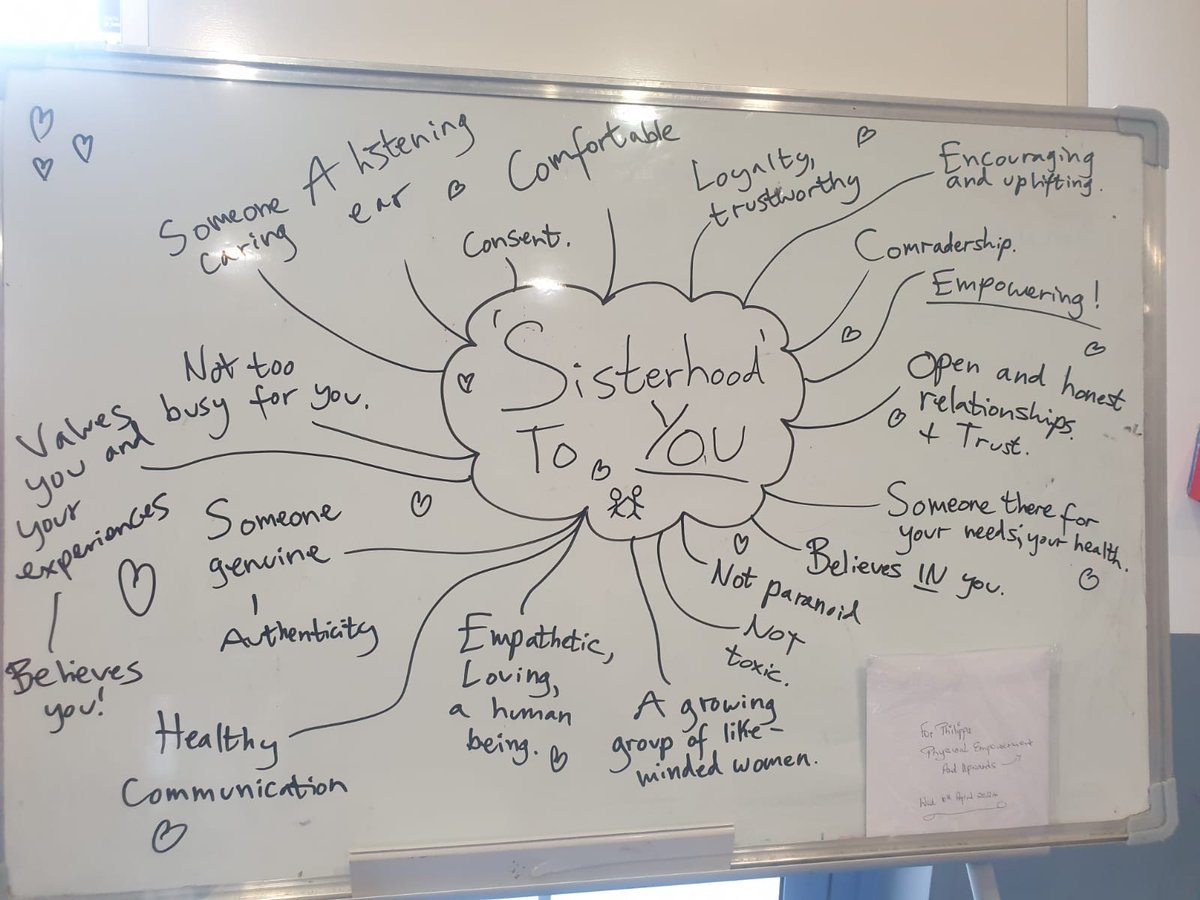 'Sisterhood'
To YOU
Someone
caring
A listening
ear
Consent.
Comfortable
Loyalty,
trustworthy
Encouraging
and uplifting.
Comradership.
Empowering!
Open and honest
relationships.
+ Trust.
Someone there for
your needs, your health.
Believes IN you.
Not paranoid
Not
toxic.
A growing
group of like-
minded women.
Empathetic,
Loving,
a human
being.
Healthy
Communication
Someone
genuine
Authenticity
Values
you and
your
experiences
Believes
you!
Not too
busy for you.
For Philippa
Physical Empowerment
And Upwards